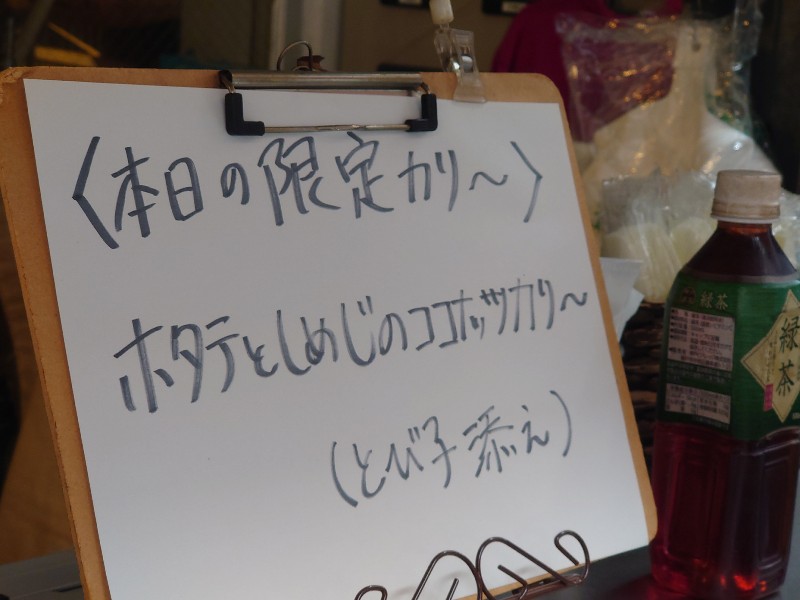 〈本日の限定カリ〜〉
ホタテとしめじのココナッツカリ〜
(とび子添え)
緑茶
緑茶